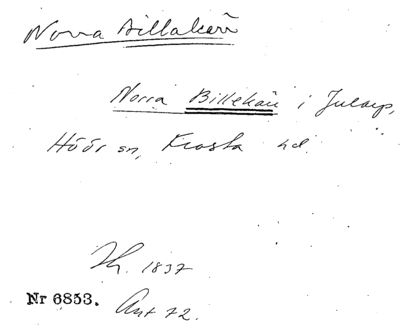 Norra Billakärr
Norra Billekärr i Jularp,
Höör sn, Frosta hd.
Jh. 1837
Nr 6853. Ant 72.